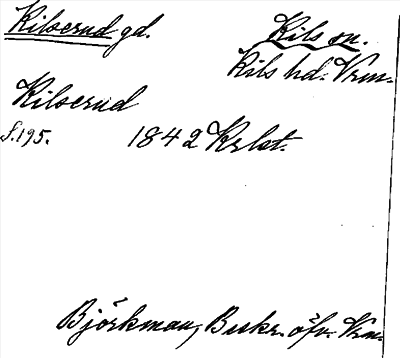 Kilserud gd. Kils sn.
Kils hd. Vrm.
Kilserud
S. 195. 1842 Krlst.
Björkman, Beskr. öfv. Vrm.